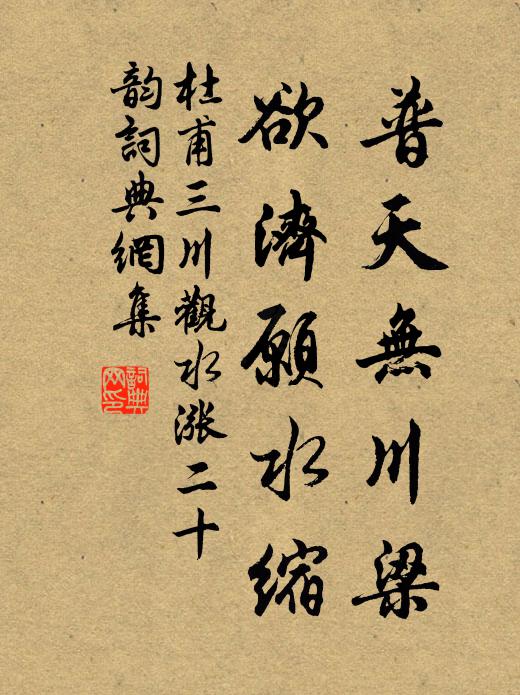 普天無川梁
欲濟願水縮
杜甫三川觀水漲二十
韵詞典網集
詞典
网印